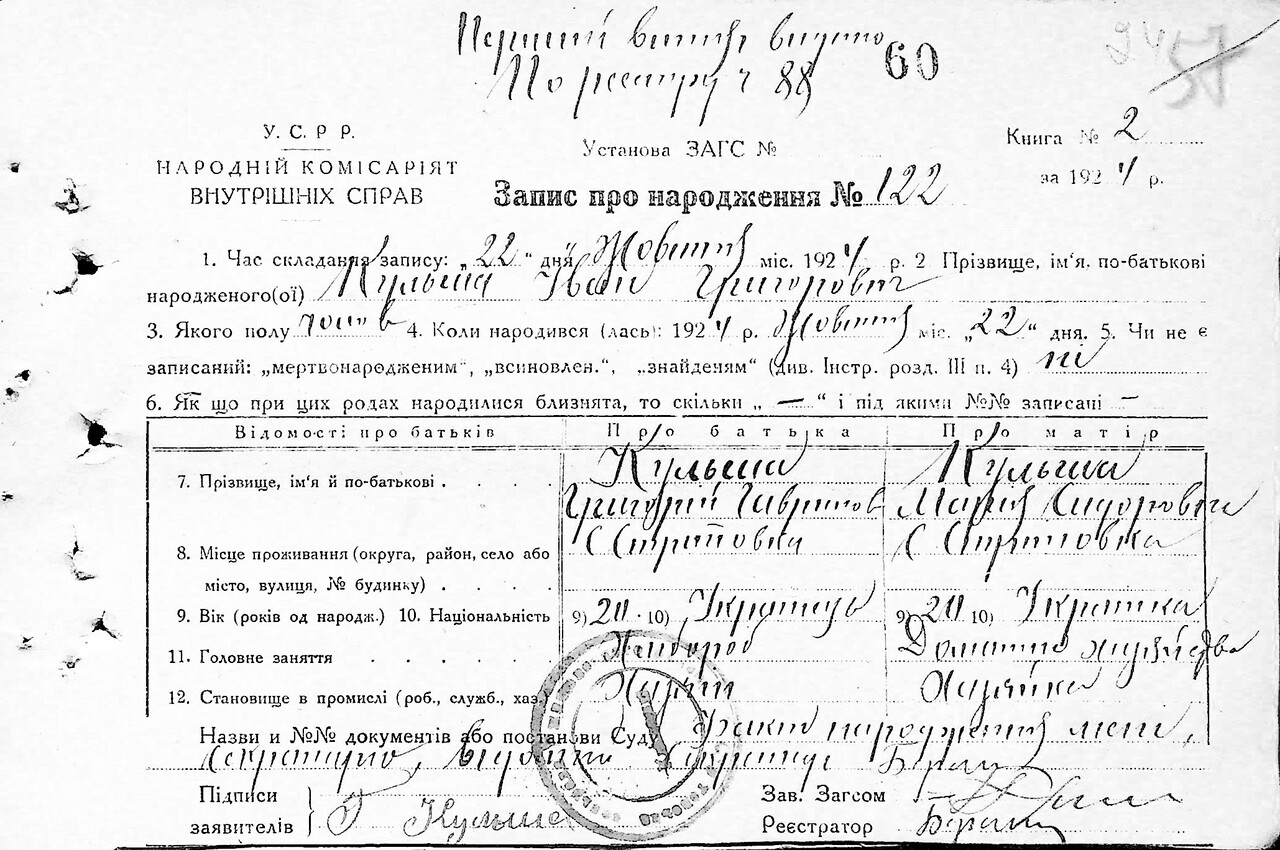 Перший витяг видано
По реєстру ч 88
60
У. С. Р. Р.
НАРОДНІЙ КОМІСАРІЯТ
ВНУТРІШНІХ СПРАВ
Установа ЗАГС №
Книга № 2
за 1924 р.
Запис про народження № 122
1. Час складання запису: „22“ дня Жовтня міс. 1924 р. 2 Прізвище, ім‘я, по-батькові
народженого(ої) Кульша Іван Григорович
3. Якого полу чолов 4. Коли народився (лась): 1924 р. Жовтня міс. „22“ дня. 5. Чи не є
записаний: „мертвонародженим“, „всиновлен.“, „знайденям“ (див. Інстр. розд. III п. 4) ні
6. Як що при цих родах народилися близнята, то скільки „ — “ і під якими №№ записані —
Відомості про батьків Про батька Про матір
7. Прізвище, ім‘я й по-батькові . . . . Кульша Кульша
Григорій Гаврилов Мария Сидоровна
8. Місце проживання (округа, район, село або
місто, вулиця, № будинку) . . . .
9. Вік (років од народж.) 10. Національність 9) 20 10) Українець 9) 20 10) Українка
11. Головне заняття . . . . . Хлібороб Домашне хазяйство
12. Становище в промислі (роб., служб., хаз.) Хазяїн Хазяйка
Назви и №№ документів або постанови Суду Факт народження мені,
Секретарю, відомий
Підписи
заявителів Г Кульша
Зав. Загсом
Реєстратор